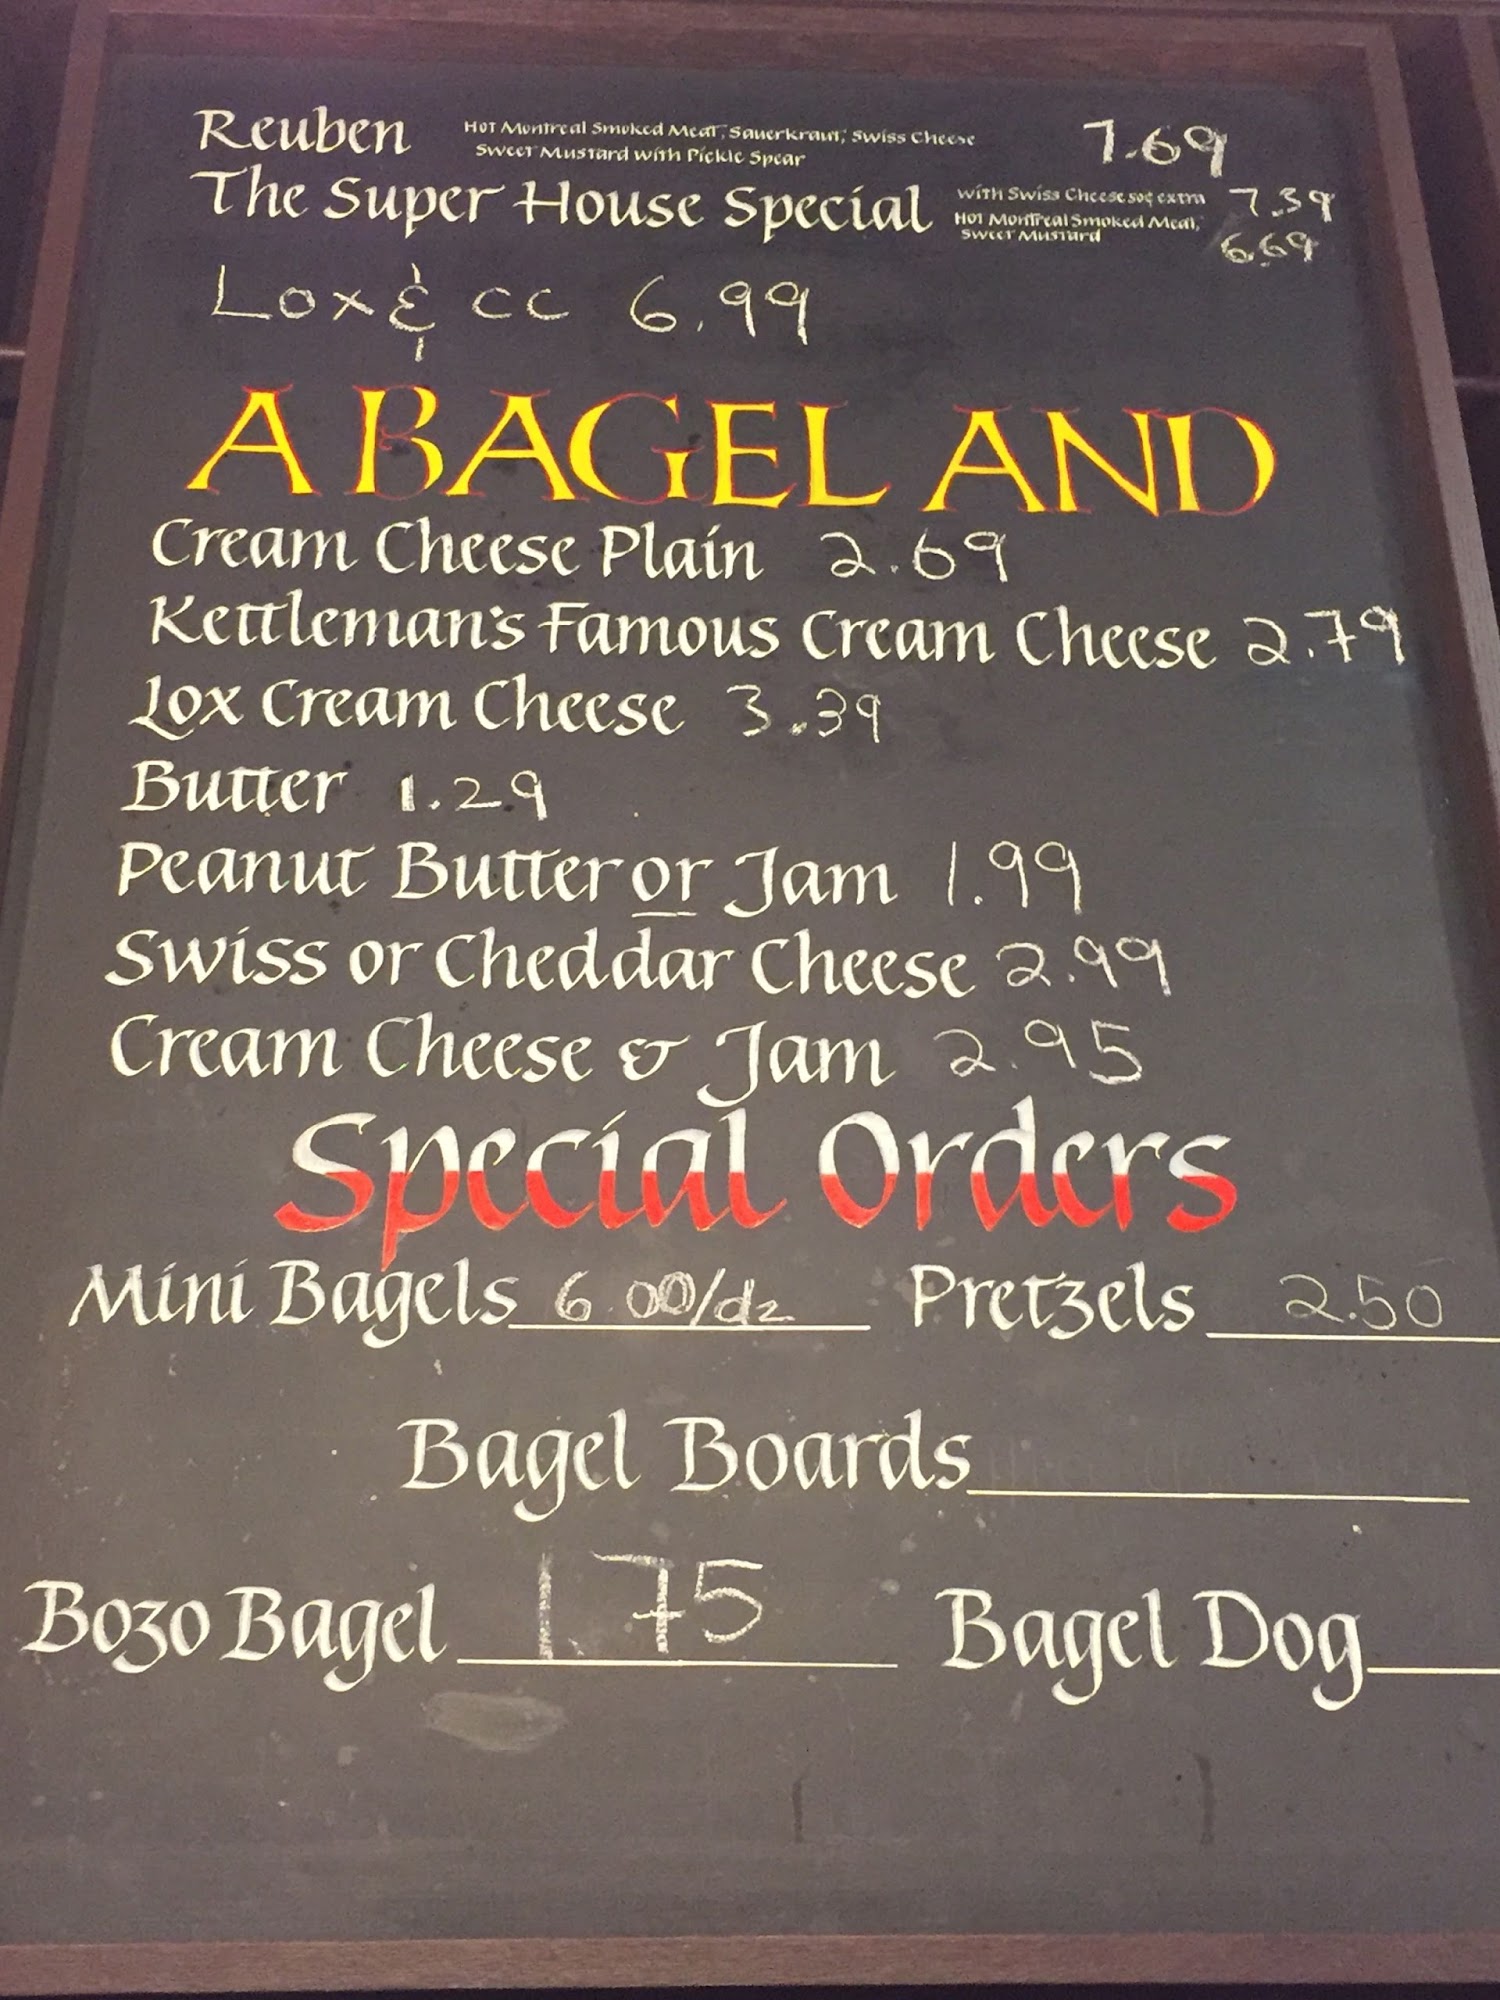 Reuben Hot Montreal Smoked Meat, Sauerkraut, Swiss Cheese 7.69
Sweet Mustard with Pickle Spear
The Super House Special with Swiss Cheese 50¢ extra 7.39
Hot Montreal Smoked Meat, 6.69
Sweet Mustard
Lox & cc 6.99
A BAGEL AND
Cream Cheese Plain 2.69
Kettleman's Famous Cream Cheese 2.79
Lox Cream Cheese 3.39
Butter 1.29
Peanut Butter or Jam 1.99
Swiss or Cheddar Cheese 2.99
Cream Cheese & Jam 2.95
Special Orders
Mini Bagels 6.00/dz Pretzels 2.50
Bagel Boards
Bozo Bagel 1.75 Bagel Dog